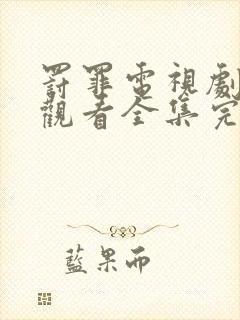 罰罪電視劇
觀看全集完
藍果而